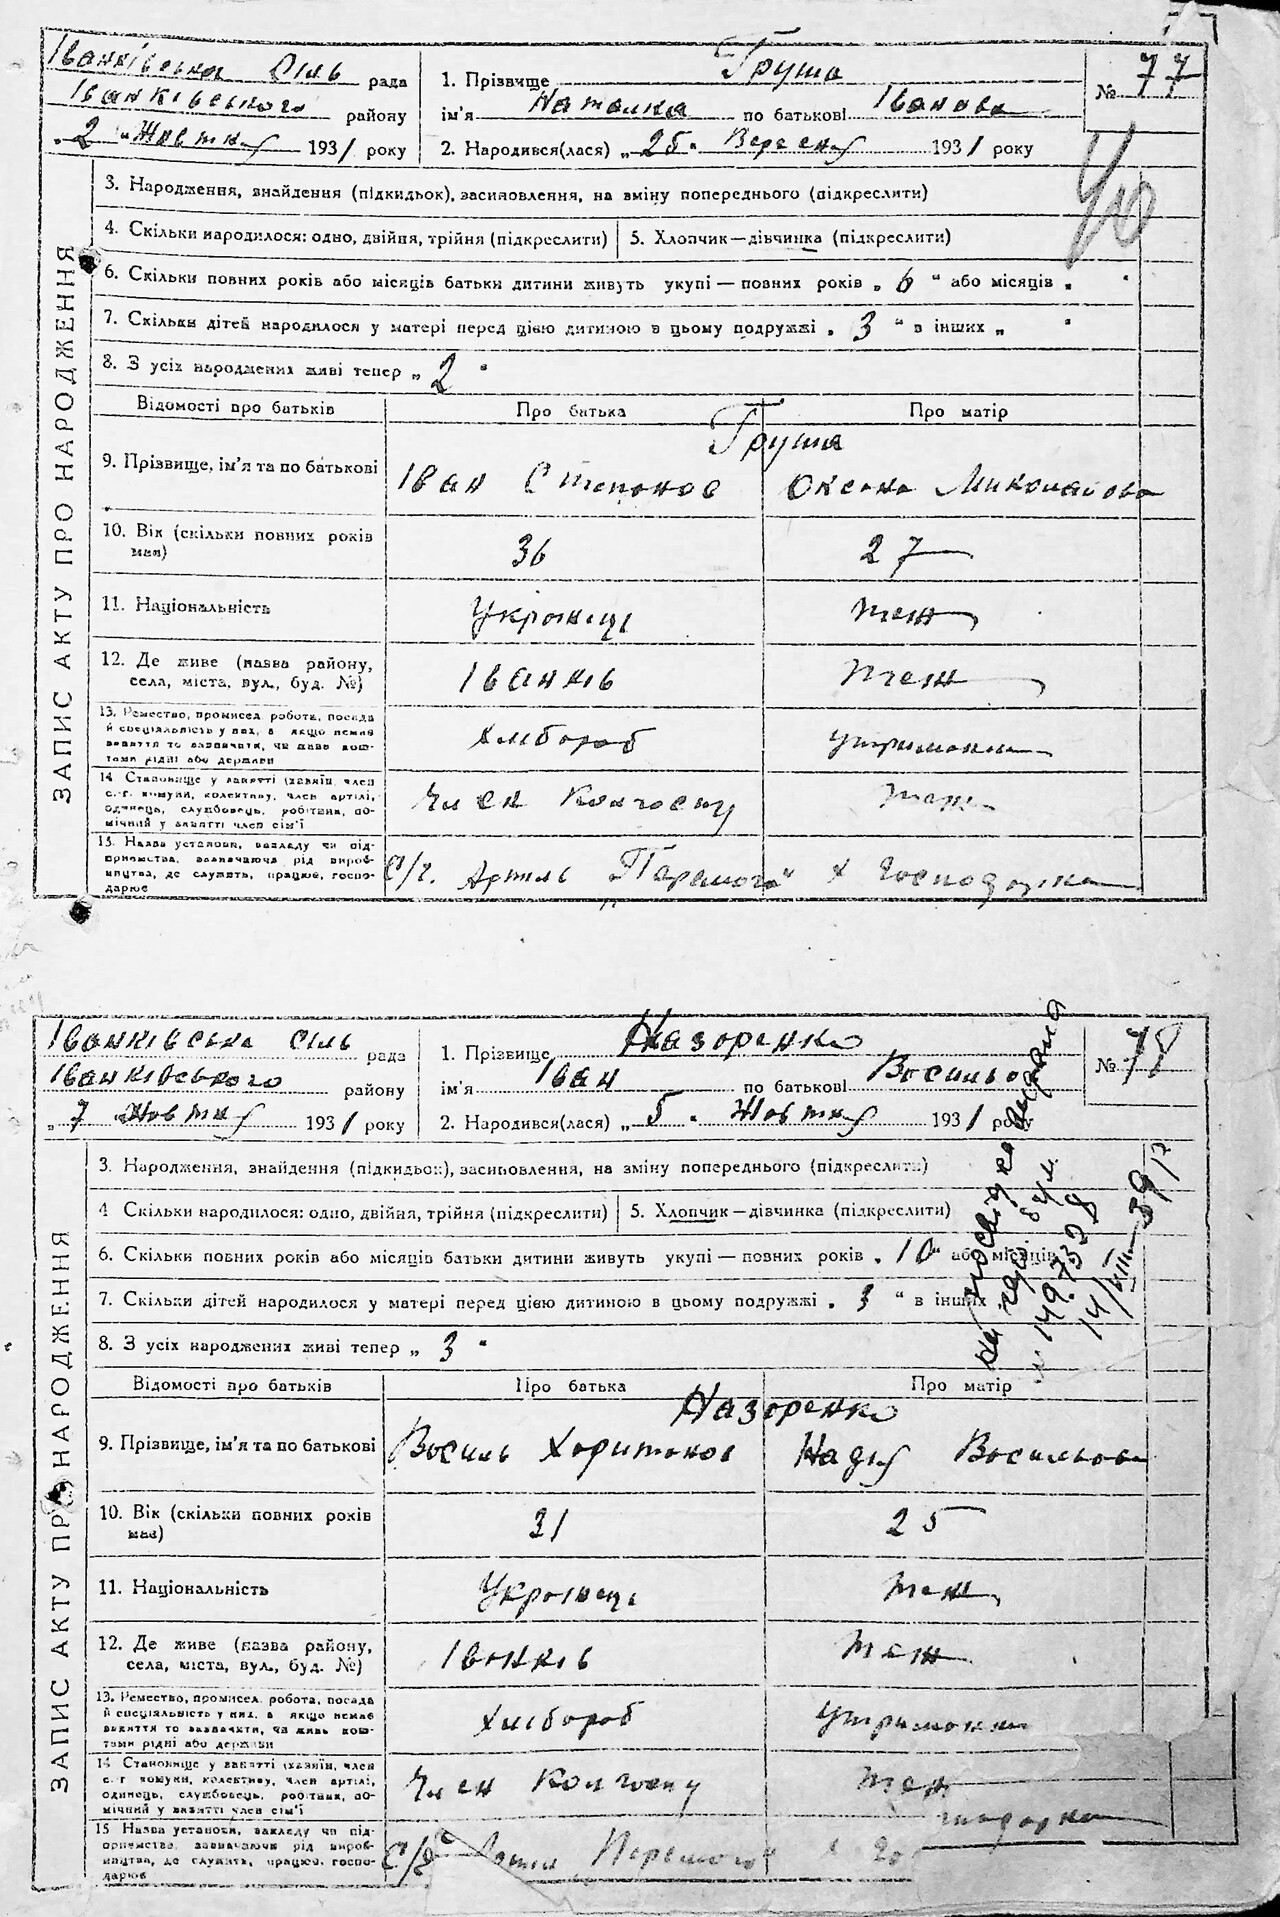 Іванківська Сіль рада
Іванківського району
„2" Жовтня 1931 року
1. Прізвище Груша
ім'я Наталка по батькові Іванова
2. Народився(лася) „25" Вересня 1931 року
№ 77
ЗАПИС АКТУ ПРО НАРОДЖЕННЯ
3. Народження, знайдення (підкидьок), засиновлення, на зміну попереднього (підкреслити)
4. Скільки народилося: одно, двійня, трійня (підкреслити) 5. Хлопчик—дівчинка (підкреслити)
6. Скільки повних років або місяців батьки дитини живуть укупі — повних років „ 6 " або місяців „ "
7. Скільки дітей народилося у матері перед цією дитиною в цьому подружжі „ 3 " в інших „ "
8. З усіх народжених живі тепер „ 2 "
Відомості про батьків Про батька Про матір
Груша
9. Прізвище, ім'я та по батькові Іван Степанов Оксана Миколайова
10. Вік (скільки повних років 36 27
має)
11. Національність Українець теж
12. Де живе (назва району, Іванків теж
села, міста, вул., буд. №)
13. Ремество, промисел, робота, посада
й спеціальність у них, а якщо немає Хлібороб утриманка
заняття то зазначити, чи живе кош-
тами рідні або держави
14. Становище у занятті (хазяїн, член
с.-г. комуни, колективу, член артілі, Член Колгоспу теж
одинець, службовець, робітник, по-
мічний у занятті член сім'ї
15. Назва установи, закладу чи під-
приємства, зазначаючи рід вироб- С/г. Артиль „Перемога" х господарка
ництва, де служить, працює, госпо-
дарює
Іванківська сіль рада
Іванківського району
„7" Жовтня 1931 року
1. Прізвище Назоренко
ім'я Іван по батькові Васильов
2. Народився(лася) „5" Жовтня 1931 року
№ 78
ЗАПИС АКТУ ПРО НАРОДЖЕННЯ
3. Народження, знайдення (підкидьок), засиновлення, на зміну попереднього (підкреслити)
4 Скільки народилося: одно, двійня, трійня (підкреслити) 5. Хлопчик—дівчинка (підкреслити)
6. Скільки повних років або місяців батьки дитини живуть укупі — повних років „ 10 " або місяців
7. Скільки дітей народилося у матері перед цією дитиною в цьому подружжі „ 3 " в інших
8. З усіх народжених живі тепер „ 3 "
14/VIII—39 р
Відомості про батьків Про батька Про матір
Назоренко
9. Прізвище, ім'я та по батькові Василь Харитонов Надія Васильова
10. Вік (скільки повних років 31 25
має)
11. Національність Українець теж
12. Де живе (назва району, Іванків теж
села, міста, вул., буд. №)
13. Ремество, промисел, робота, посада
й спеціальність у них, а якщо немає Хлібороб утриманка
заняття то зазначити, чи живе кош-
тами рідні або держави
14 Становище у занятті (хазяїн, член
с.-г комуни, колективу, член артілі, Член Колгоспу теж
одинець, службовець, робітник, по-
мічний у занятті член сім'ї
15 Назва установи, закладу чи під-
приємства, зазначаючи рід вироб- С/г „Перемога"
ництва, де служить, працює, госпо-
дарює